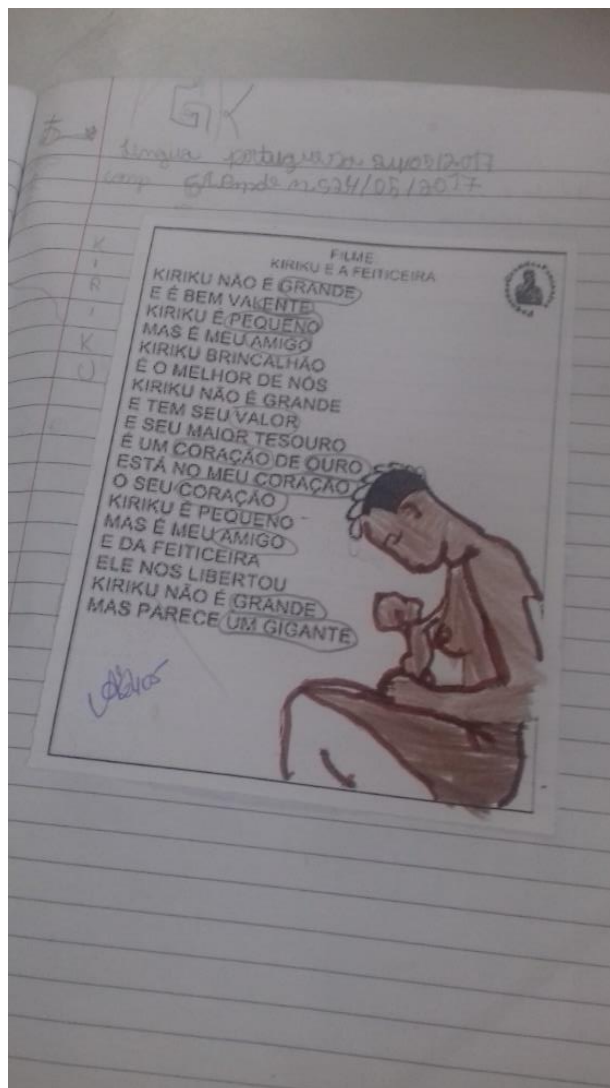 GK
Língua portuguesa
24/05/2017
K
I
R
I
K
U
FILME
KIRIKU E A FEITICEIRA
KIRIKU NÃO É GRANDE
E É BEM VALENTE
KIRIKU É PEQUENO
MAS É MEU AMIGO
KIRIKU BRINCALHÃO
É O MELHOR DE NÓS
KIRIKU NÃO É GRANDE
E TEM SEU VALOR
E SEU MAIOR TESOURO
É UM CORAÇÃO DE OURO
ESTÁ NO MEU CORAÇÃO
O SEU CORAÇÃO
KIRIKU É PEQUENO
MAS É MEU AMIGO
E DA FEITICEIRA
ELE NOS LIBERTOU
KIRIKU NÃO É GRANDE
MAS PARECE UM GIGANTE